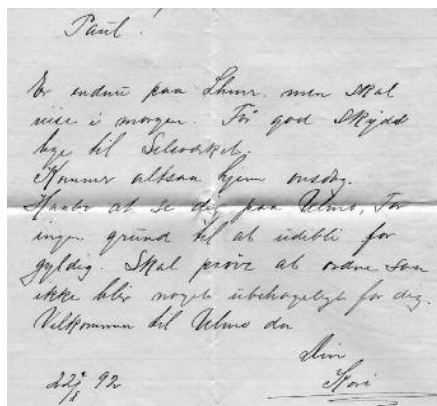 Paul!
Er endnu paa Lhmr. men skal
reise i morgen. Får god Skyds
lige til
Kommer altsaa hjem onsdag.
Haaber at se dig paa Ulmo, For
ingen grund til at udebli for
gyldig. Skal prøve at ordne saa
ikke blir noget ubehageligt for dig.
Velkommen til Ulmo da
Din
Kari
22/8 92